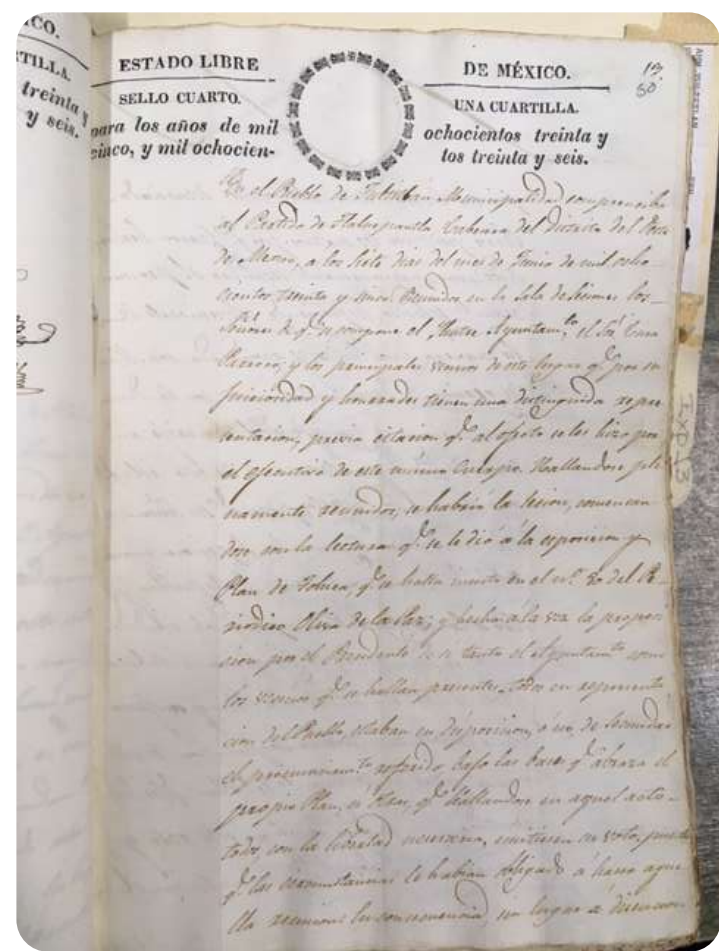 CO.
TILLA.
treinta y
y seis.
ESTADO LIBRE
DE MÉXICO.
SELLO CUARTO.
UNA CUARTILLA.
para los años de mil
ochocientos treinta y
cinco, y mil ochocien-
tos treinta y seis.
13
50
En el Pueblo de Municipalidad
al Partido de Tlalnepantla Cabecera del Distrito del Oeste
de Mexico, a los siete dias del mes de Junio de mil ocho
cientos treinta y cinco. Reunidos en la Sala de Sesiones los
Señores de q.e se compone el Ilustre Ayuntam.to el Sor. Cura
Parroco, y los principales vecinos de este lugar q.e por su
y honrades tienen una distinguida repre
sentacion, previa citacion q.e al efecto se les hizo por
el de este mismo Cuerpo. Hallandose ple
namente reunidos, se habrio la sesion, comenzan
dose con la lectura q.e se le dió á la esposicion y
Plan de Toluca q.e se halla en el n.o 20 del Pe
riodico Oliva de la Paz; y hecha á la vez la proposi
cion por el Presidente de si tanto el Ayuntam.to como
los vecinos q.e se hallan presentes, todos en representa
cion del Pueblo, estaban en disposicion, ó no, de secundar
el pronunciam.to referido bajo las bases q.e abraza el
propio Plan, q.e hallandose en aquel acto
todos con la libertad necesaria, emitiesen su voto, pues
q.e las circunstancias le habian obligado á hacer aque
lla reunion. En consecuencia
EXP. 13